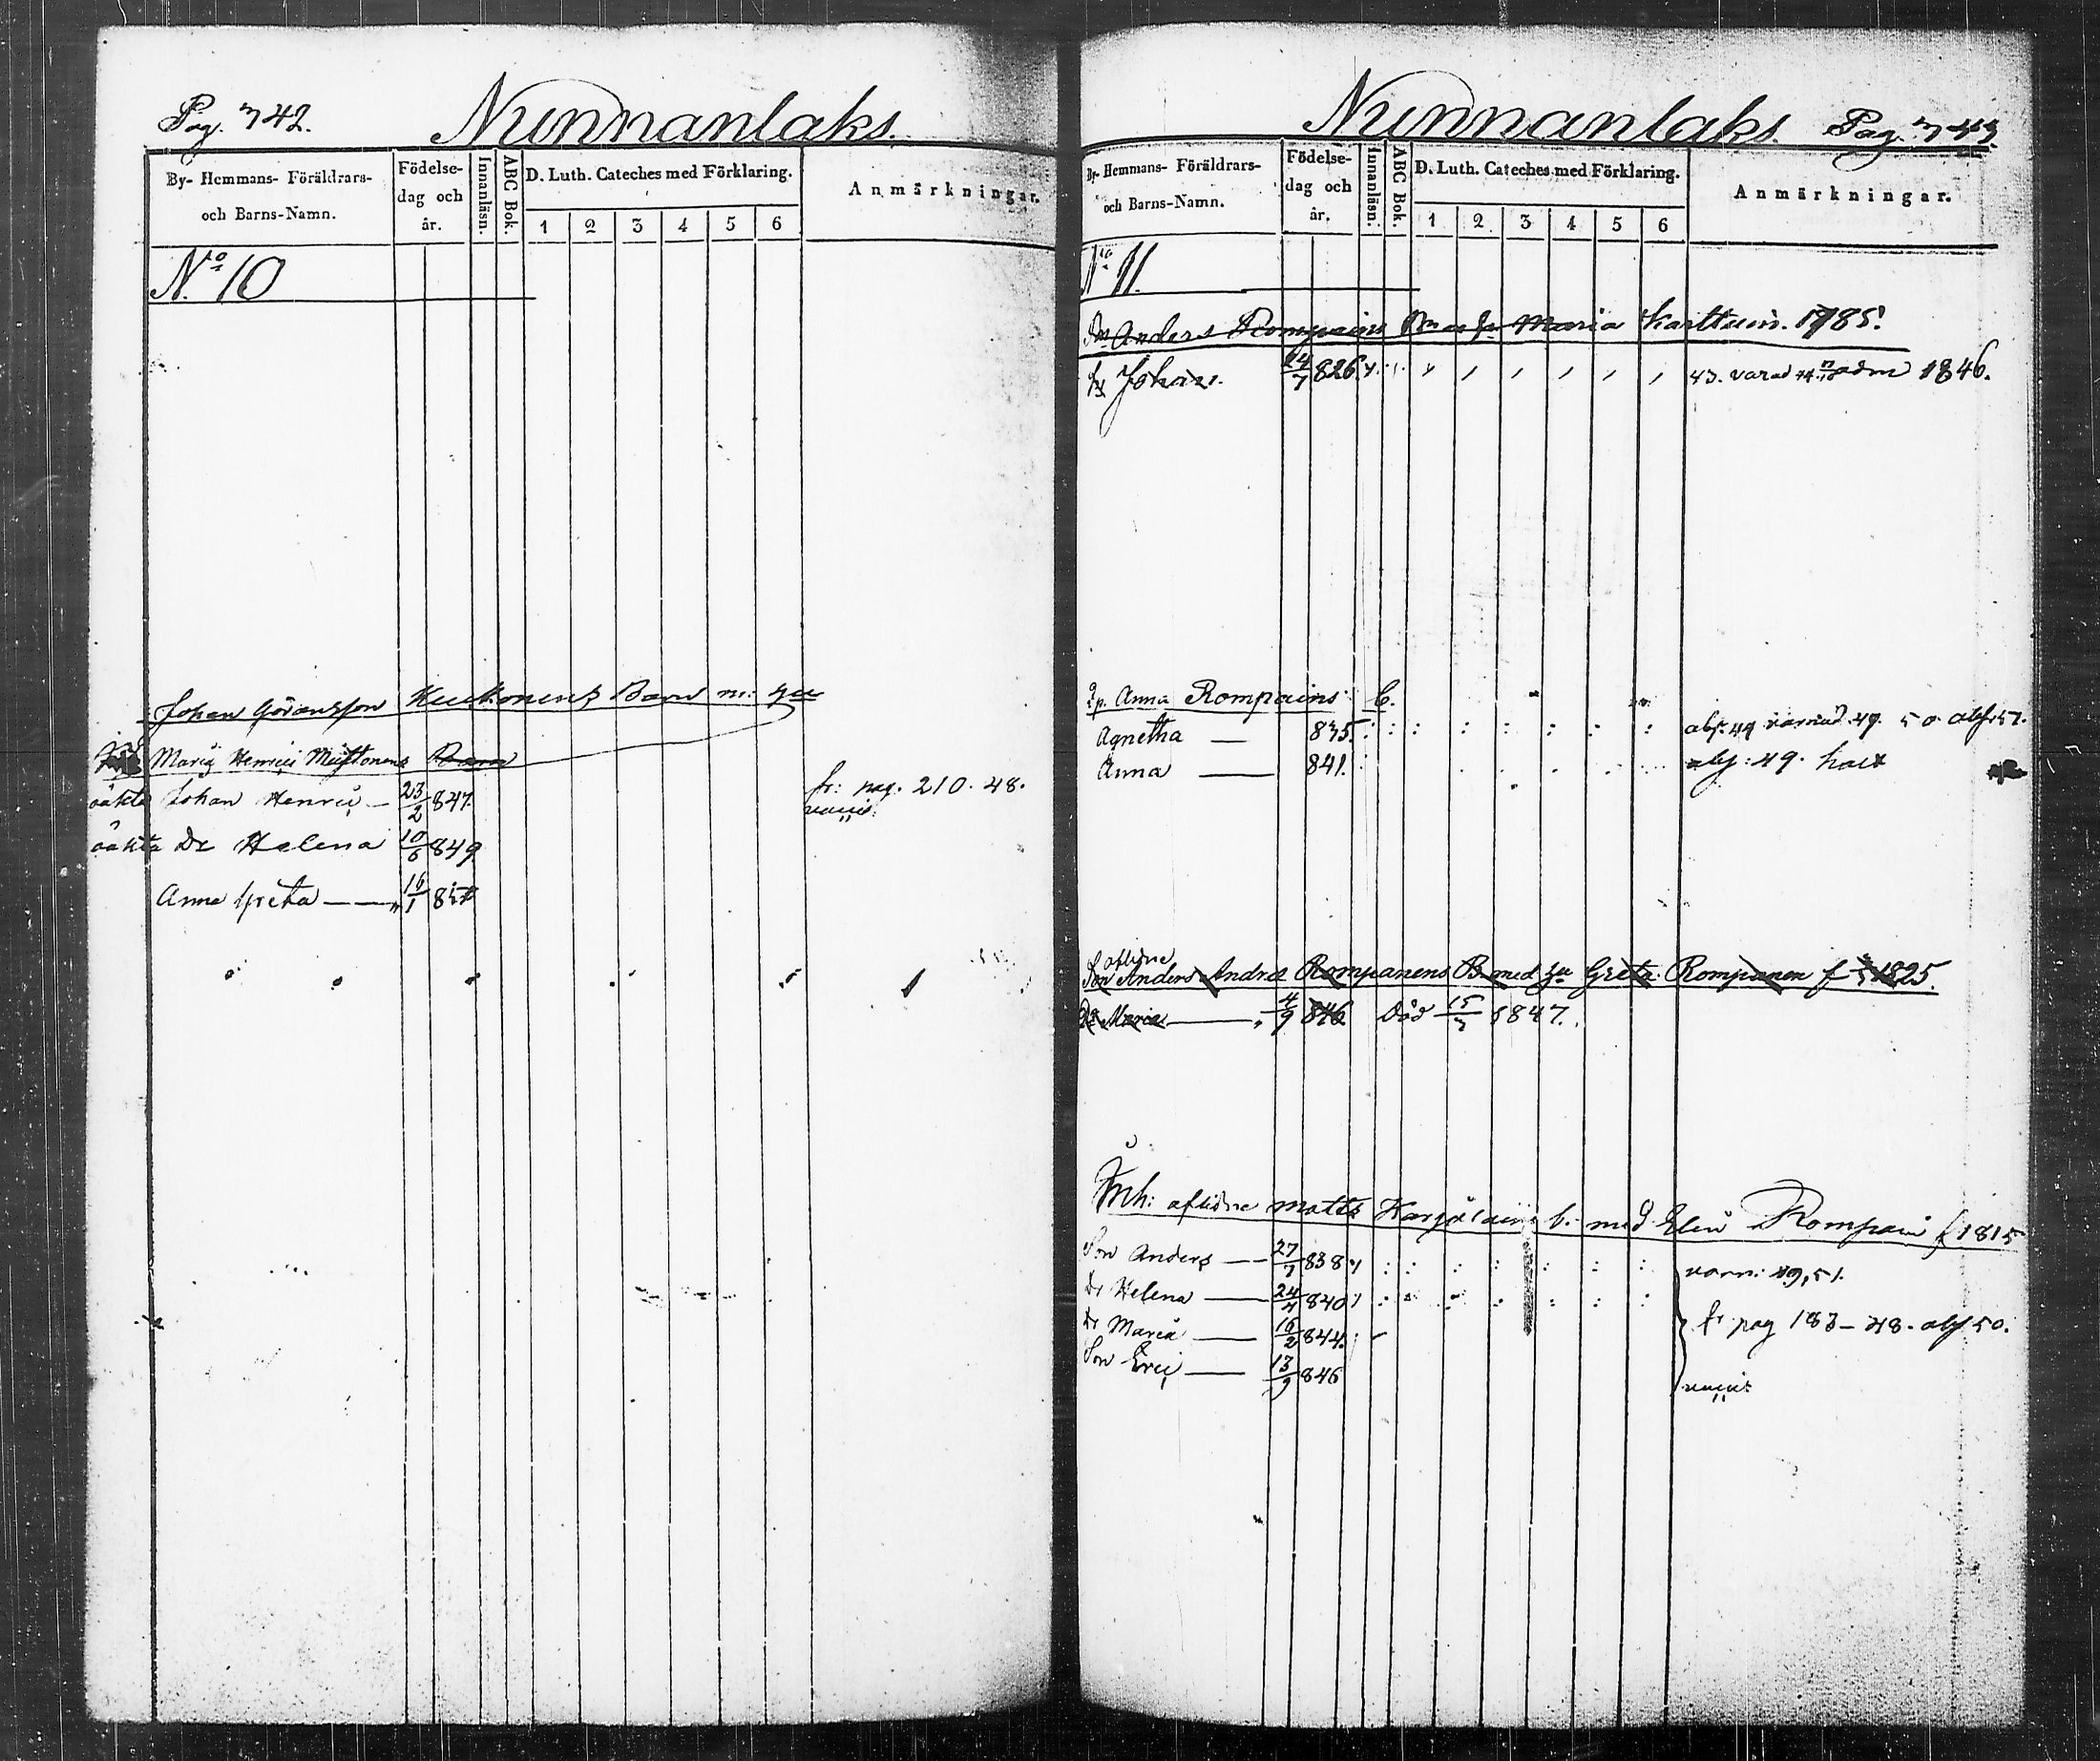 Pag. 742. Nunnanlaks.
By- Hemmans- Föräldrars- och Barns-Namn. Födelse- dag och år. Innanläsn. ABC Bok. D. Luth. Cateches med Förklaring. 1 2 3 4 5 6 Anmärkningar.
No 10
Johan Göransson Kuckonens Barn m:
Maria Henrici Mustonens Barn
oäkta Johan Henric — 23/2 847. fr: pag. 210. 48.
vacci:
oäkta Dr Helena 10/6 849
Anna Greta — 16/1
Nunnanlaks. Pag. 743.
By- Hemmans- Föräldrars- och Barns-Namn. Födelse- dag och år. Innanläsn: ABC Bok. D. Luth. Cateches med Förklaring. 1 2 3 4 5 6 Anmärkningar.
No 11.
Anders Rompains Maria Karttuin. 1785.
Johan. 24/7 826. 43. varnad adm 1846.
Anna Rompains b.
Agnetha — 835. abs: 49 varnad. 49. 50. abs: 51.
Anna — 841. abs: 49. halt
aflidne
Son Anders Andrs Rompanens B. med Greta Rompanen f 1825.
Dr Maria — 4/9 846 död 15/3 1847.
Inh: aflidne Matts Karjalains b. med Elin Rompain f 1815
Son Anders — 27/7 838 varn: 49, 51.
Dr Helena — 24/4 840
Dr Maria — 16/2 844. fr pag 183 – 48. abs 50.
Son Eric — 13/9 846
vacci: